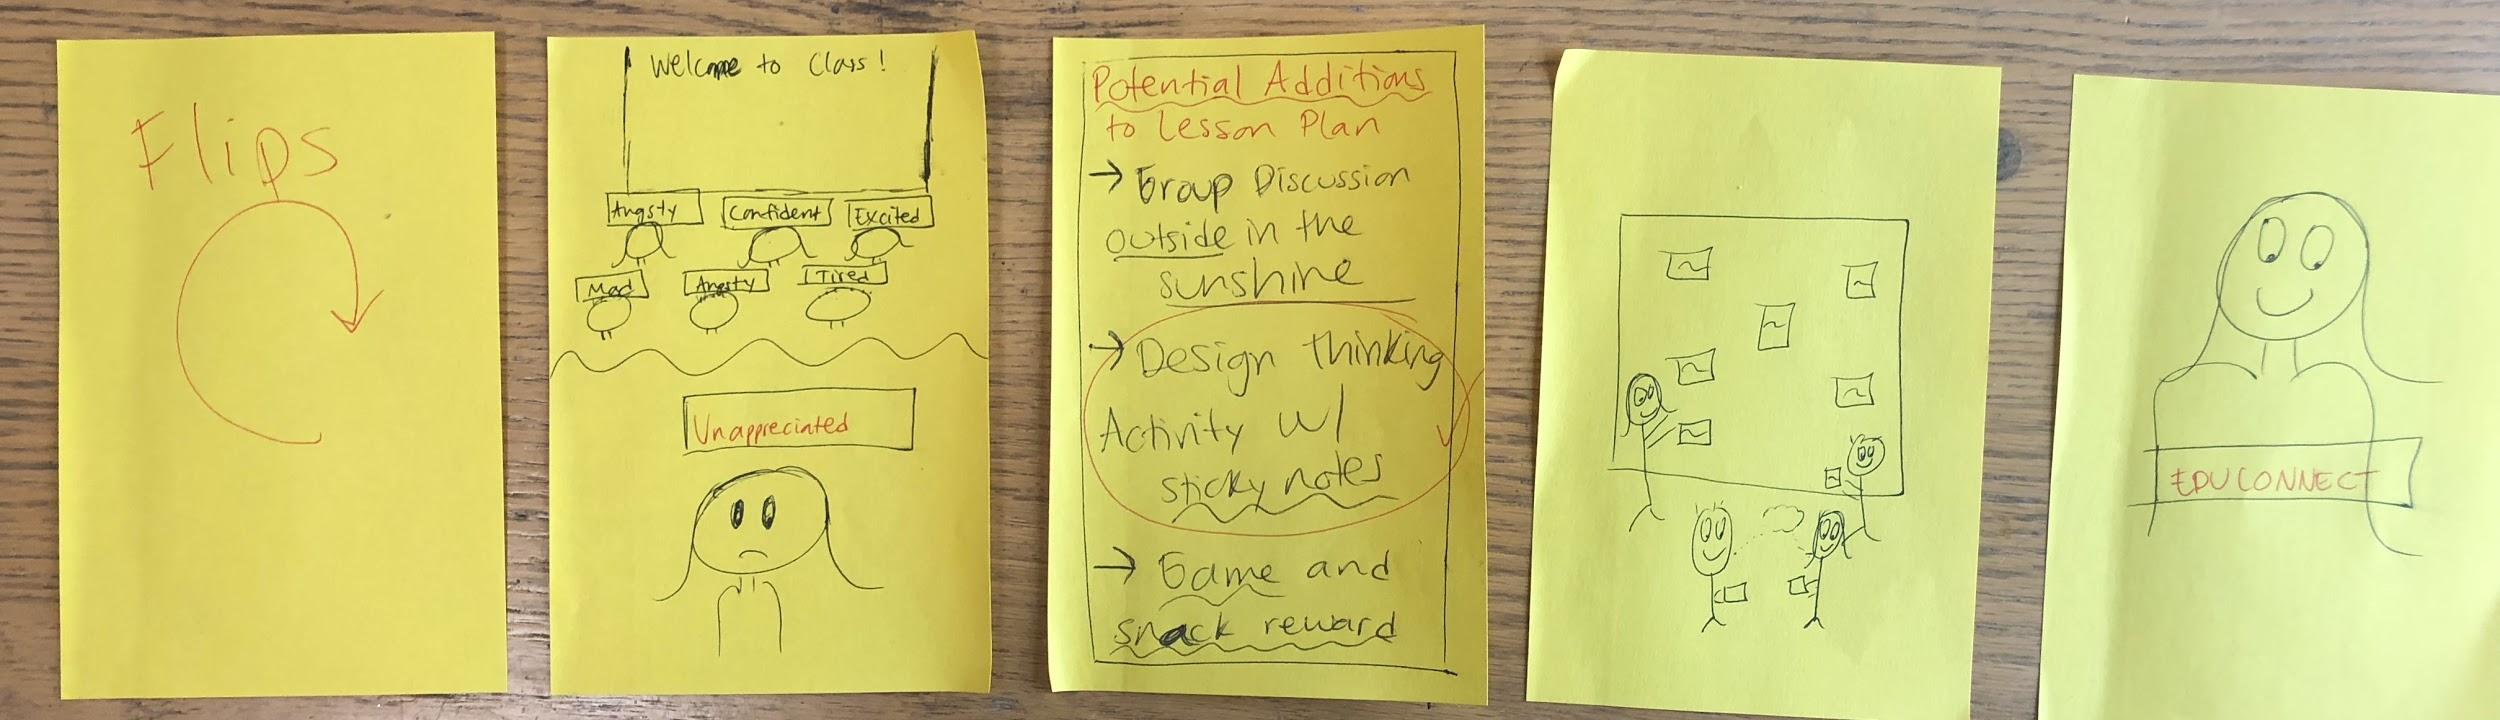 Flips
Welcome to Class!
Angsty
Confident
Excited
Mad
Angsty
Tired
Unappreciated
Potential Additions
to Lesson Plan
→ Group Discussion
outside in the
sunshine
→ Design thinking
Activity w/
sticky notes
→ Game and
snack reward
EDUCONNECT